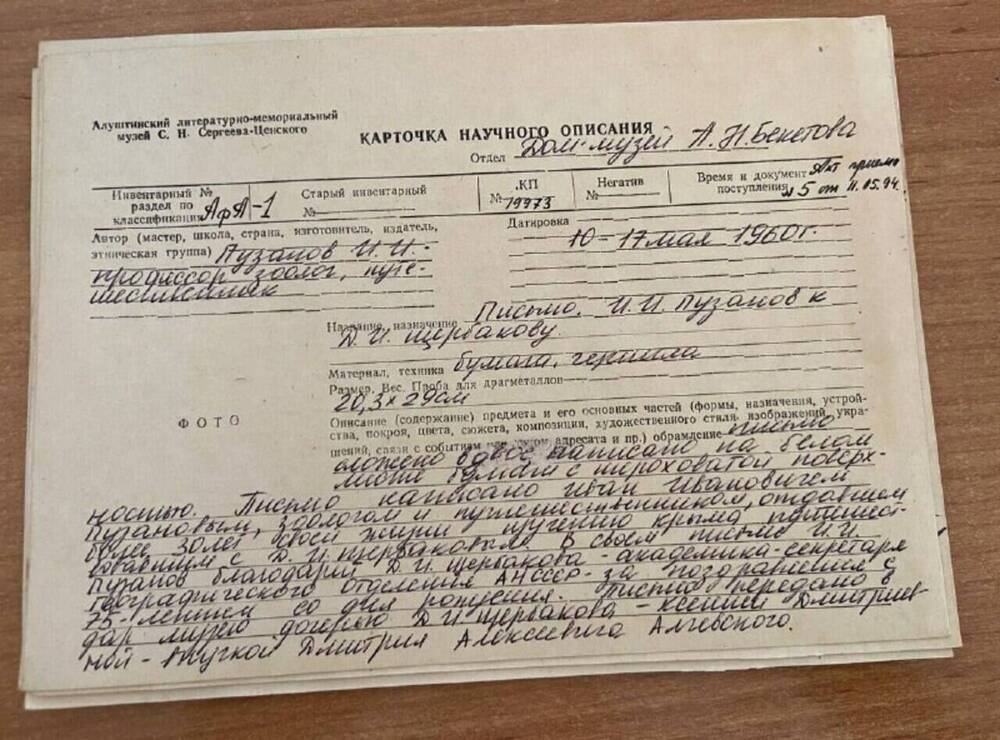 Алуштинский литературно-мемориальный
музей С. Н. Сергеева-Ценского
КАРТОЧКА НАУЧНОГО ОПИСАНИЯ
Отдел Дом-музей А.Н.Бекетова
Инвентарный №
раздел по
классификации АфА-1
Старый инвентарный
№
КП
№ 19973
Негатив
№
Время и документ Акт приема
поступления №5 от 11.05.94.
Автор (мастер, школа, страна, изготовитель, издатель,
этническая группа) Пузанов И.И.-
профессор зоолог, путе-
шественник
Датировка
10-17 мая 1960г.
Название, назначение Письмо. И.И.Пузанов к
Д.И.Щербакову.
Материал, техника бумага, чернила
Размер. Вес. Проба для драгметаллов
20,3 х 29см
ФОТО
Описание (содержание) предмета и его основных частей (формы, назначения, устрой-
ства, покроя, цвета, сюжета, композиции, художественного стиля, изображений, укра-
шений, связи с событием адресата и пр.) обрамление письмо
сложено вдвое написано на белом
листе бумаги с шероховатой поверх-
ностью. Письмо написано Иван Ивановичем
Пузановым, зоологом и путешественником, отдавшем
более 30 лет своей жизни изучению Крыма, путешест-
вовавшим с Д.И.Щербаковым. В своем письме И.И.
Пузанов благодарит Д.И.Щербакова - академика-секретаря
географического отделения АНСССР - за поздравления с
75-летием со дня рождения. Письмо передано в
дар музею дочерью Д.И.Щербакова - Ксенией Дмитриев-
ной - внучкой Дмитрия Алексеевича Алчевского.